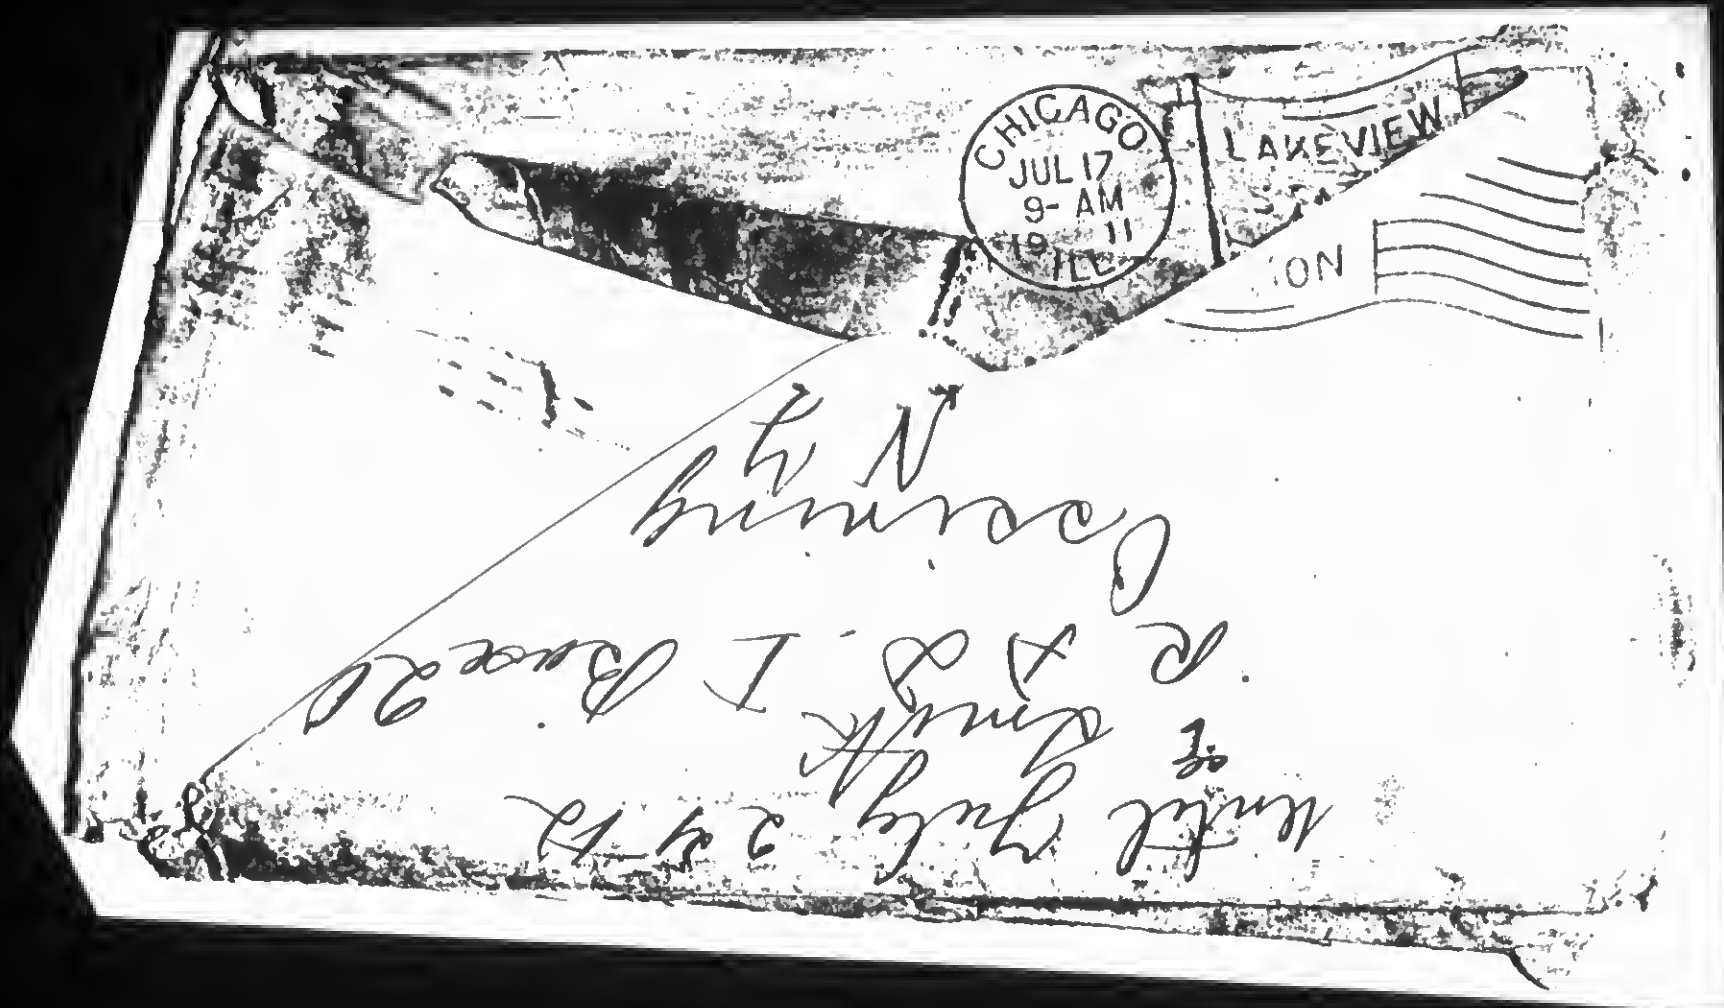 CHICAGO
JUL 17
9- AM
19 11
ILL.
LAKEVIEW
ION
Until July 24th
℅ Smith
R F D. I Box 20
Ossining
N Y